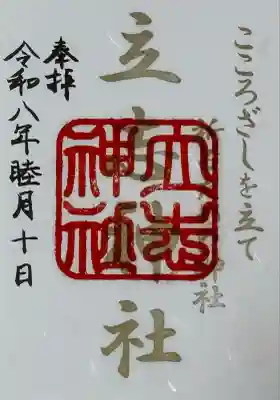 こころざしを立て
神社
立志神社
立志
神社
奉拝
令和八年睦月十日